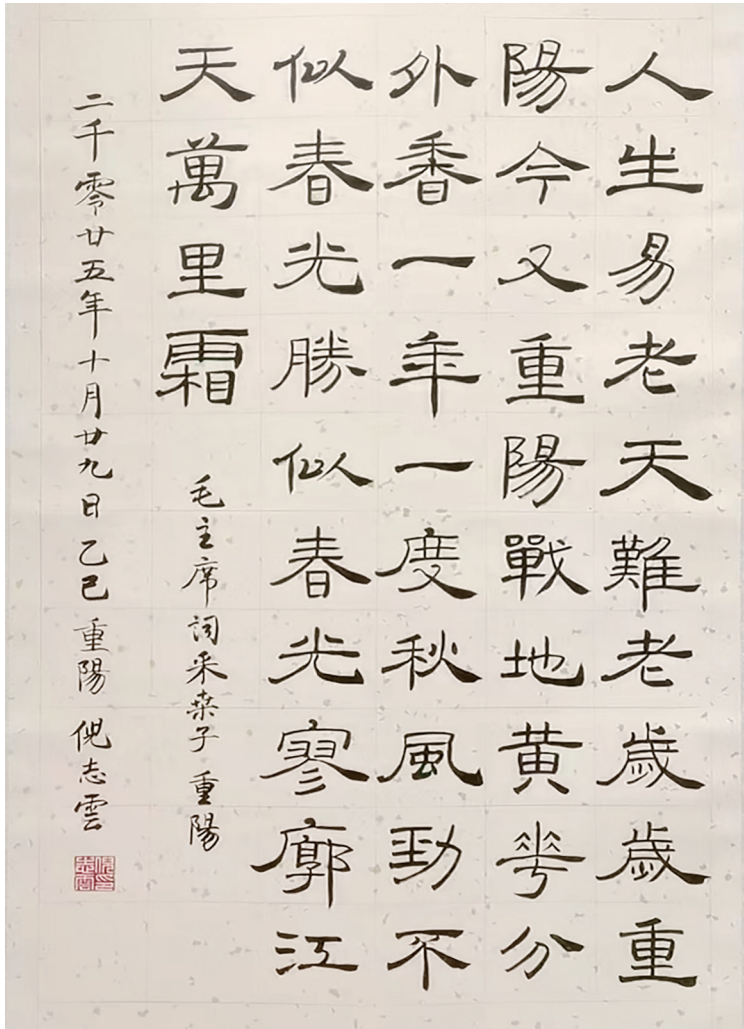 人生易老天難老歲歲重
陽今又重陽戰地黃花分
外香一年一度秋風勁不
似春光勝似春光寥廓江
天萬里霜
毛主席詞采桒子重陽
二千零廿五年十月廿九日乙巳重陽倪志雲